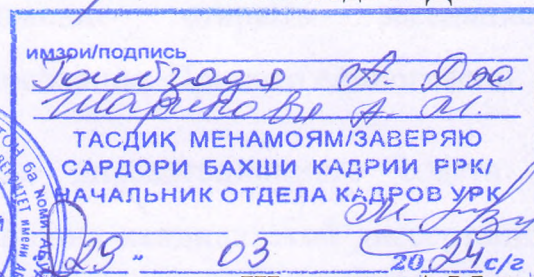 имзои/подпись
Гаибзода А. Дж.
Шарипова А. М.
ТАСДИҚ МЕНАМОЯМ/ЗАВЕРЯЮ
САРДОРИ БАХШИ КАДРИИ РРК/
НАЧАЛЬНИК ОТДЕЛА КАДРОВ УРК
"29" 03 2024 с/г